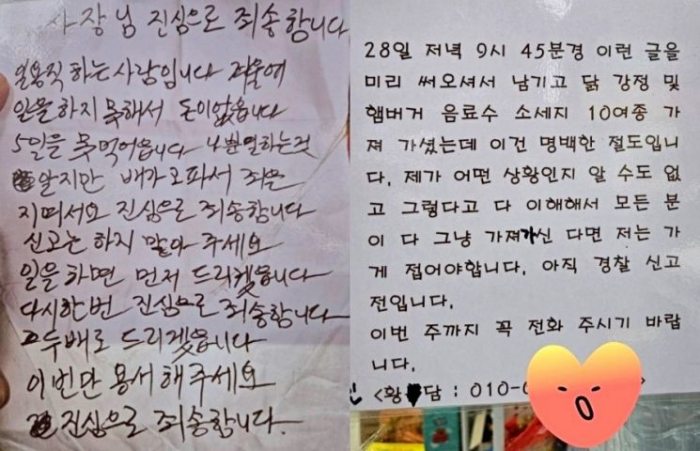 사장님 진심으로 죄송합니다
일용직 하는사람입니다 겨울에
일을 하지 못해서 돈이없읍니다
5일을 못먹어읍니다 나쁜일하는것
알지만 배가 고파서 죄를
지떠서요 진심으로 죄송합니다
신고는 하지 말아 주세요
일을 하면 먼저 드리겠읍니다
다시한번 진심으로 죄송합니다
두배로 드리겠읍니다
이번만 용서해주세요
진심으로 죄송합니다.
28일 저녁 9시 45분경 이런 글을
미리 써오셔서 남기고 닭 강정 및
햄버거 음료수 소세지 10여종 가
져 가셨는데 이건 명백한 절도입니
다. 제가 어떤 상황인지 알 수도 없
고 그렇다고 다 이해해서 모든 분
이 다 그냥 가져가신 다면 저는 가
게 접어야합니다. 아직 경찰 신고
전입니다.
이번 주까지 꼭 전화 주시기 바랍
니다.
<황 담 : 010-